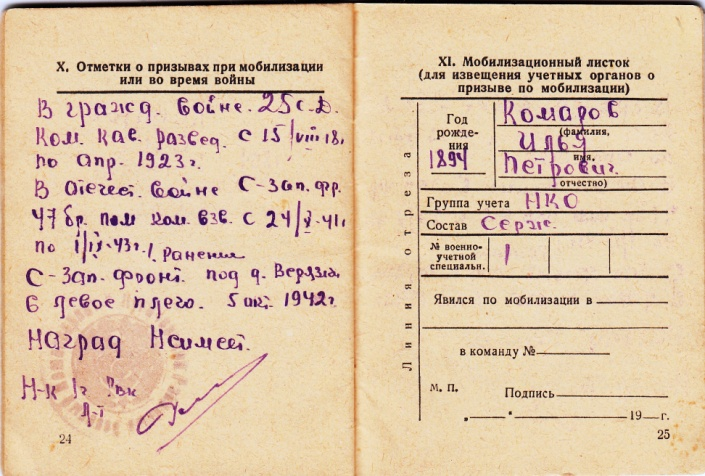 X. Отметки о призывах при мобилизации
или во время войны
В гражд. войне. 25 с.д.
Ком. кав. развед. с 15/VIII 18г.
по апр. 1923 г.
В отечест. войне с-зап. фр.
47 бр. пом ком. взв. с 24/X-41г.
по 1/IX-43г. 1 ранение
С-Зап. фронт. под д.
в левое плечо. 5 окт. 1942г.
Наград неимеет.
Н-к 1г Рвк
24
XI. Мобилизационный листок
(для извещения учетных органов о
призыве по мобилизации)
Линия отреза
Год
рожде-
ния
1894
Комаров
(фамилия,
Илья
имя,
Петрович
отчество)
Группа учета НКО
Состав Серж.
№ военно-
учетной
специальн.
1
Явился по мобилизации в
в команду №
М. П. Подпись
„ “ 19 г.
25